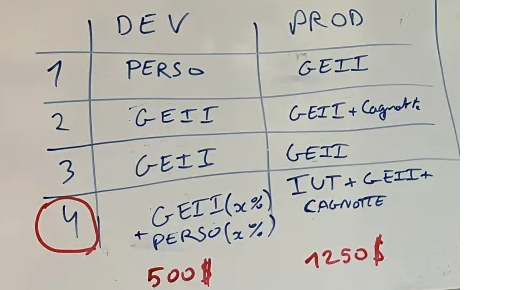 DEV PROD
1 PERSO GEII
2 GEII GEII + Cagnotte
3 GEII GEII
4 GEII (x%) + PERSO (x%) IUT + GEII + CAGNOTTE
500$ 1250$